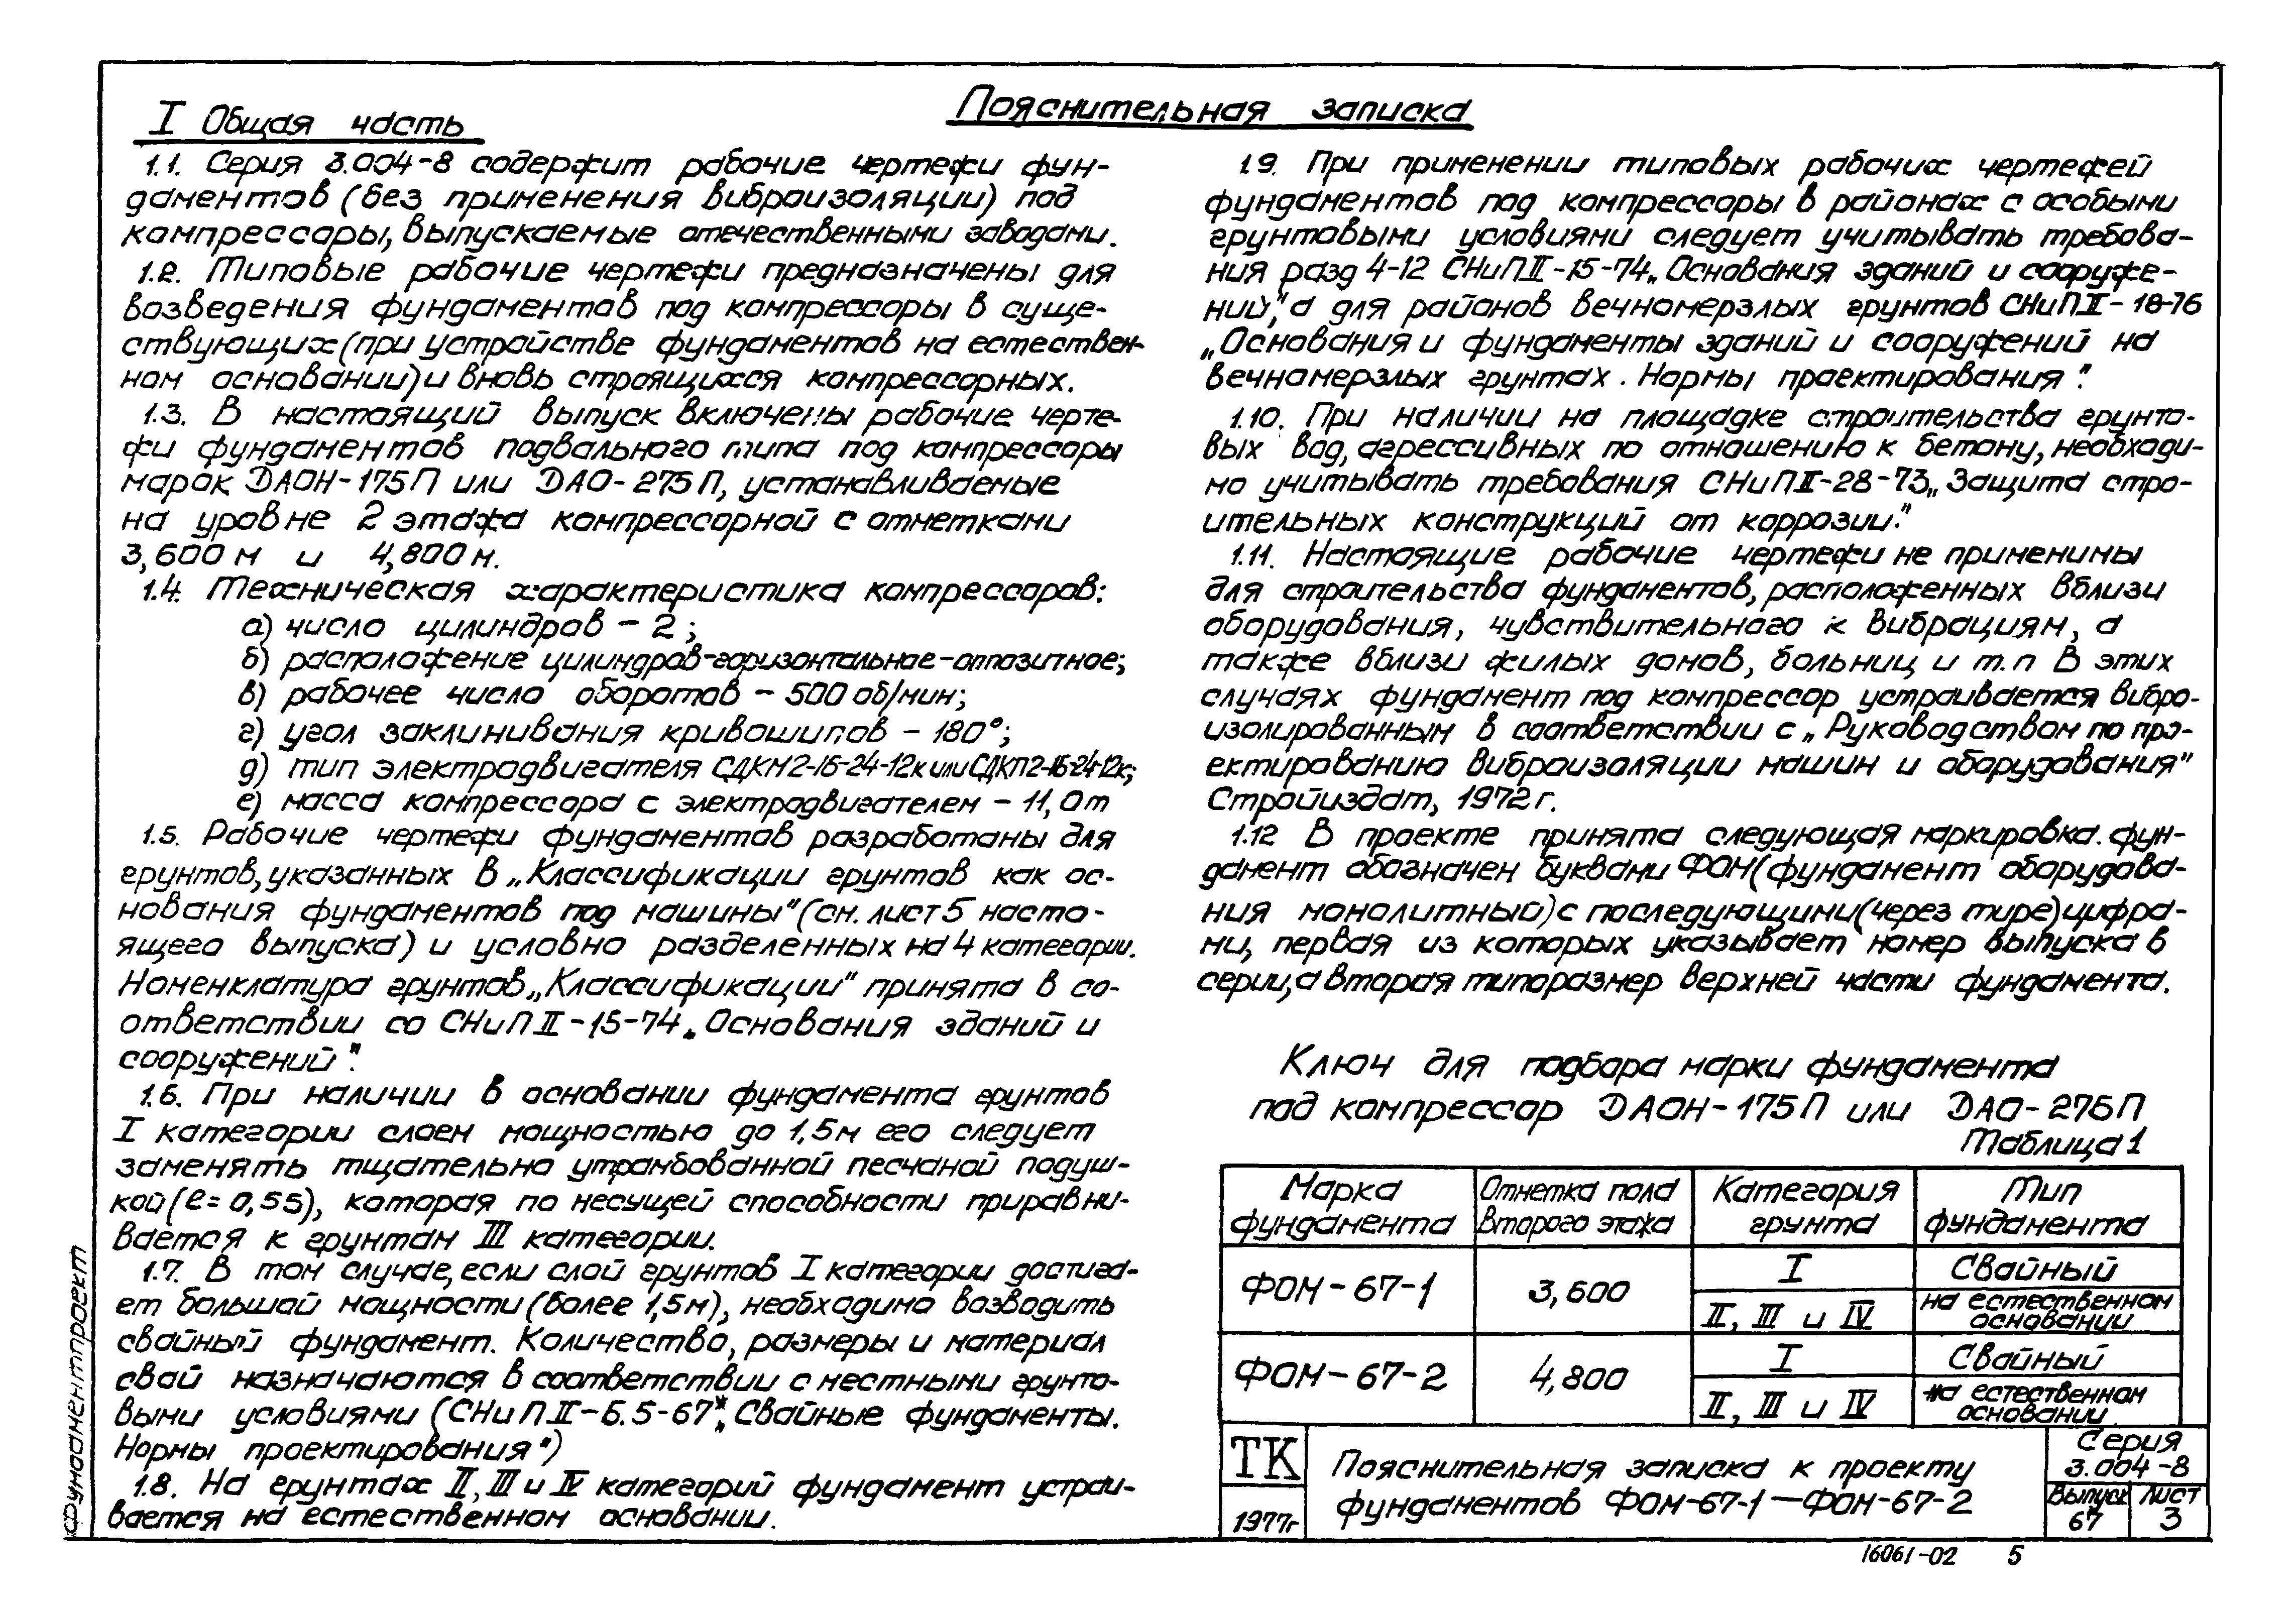 Пояснительная записка
I Общая часть
1.1. Серия 3.004-8 содержит рабочие чертежи фун-
даментов (без применения виброизоляции) под
компрессоры, выпускаемые отечественными заводами.
1.2. Типовые рабочие чертежи предназначены для
возведения фундаментов под компрессоры в суще-
ствующих (при устройстве фундаментов на естествен-
ном основании) и вновь строящихся компрессорных.
1.3. В настоящий выпуск включены рабочие черте-
жи фундаментов подвального типа под компрессоры
марок ДАОН-175П или ДАО-275П, устанавливаемые
на уровне 2 этажа компрессорной с отметками
3,600 м и 4,800 м.
1.4. Техническая характеристика компрессоров:
а) число цилиндров - 2;
б) расположение цилиндров-горизонтальное-оппозитное;
в) рабочее число оборотов - 500 об/мин;
г) угол заклинивания кривошипов - 180°;
д) тип электродвигателя СДКМ2-16-24-12к или СДКП2-16-24-12к;
е) масса компрессора с электродвигателем - 11,0т
1.5. Рабочие чертежи фундаментов разработаны для
грунтов, указанных в „Классификации грунтов как ос-
нования фундаментов под машины" (см. лист 5 насто-
ящего выпуска) и условно разделенных на 4 категории.
Номенклатура грунтов „Классификации" принята в со-
ответствии со СНиП II-15-74 „Основания зданий и
сооружений".
1.6. При наличии в основании фундамента грунтов
I категории слоем мощностью до 1,5м его следует
заменять тщательно утрамбованной песчаной подуш-
кой (е= 0,55), которая по несущей способности приравни-
вается к грунтам III категории.
1.7. В том случае, если слой грунтов I категории достига-
ет большой мощности (более 1,5м), необходимо возводить
свайный фундамент. Количество, размеры и материал
свай назначаются в соответствии с местными грунто-
выми условиями (СНиП II-Б.5-67* „Свайные фундаменты.
Нормы проектирования")
1.8. На грунтах II, III и IV категорий фундамент устраи-
вается на естественном основании.
1.9. При применении типовых рабочих чертежей
фундаментов под компрессоры в районах с особыми
грунтовыми условиями следует учитывать требова-
ния разд 4-12 СНиП II-15-74 „Основания зданий и сооруже-
ний", а для районов вечномерзлых грунтов СНиП II-18-76
„Основания и фундаменты зданий и сооружений на
вечномерзлых грунтах. Нормы проектирования".
1.10. При наличии на площадке строительства грунто-
вых вод, агрессивных по отношению к бетону, необходи-
мо учитывать требования СНиП II-28-73 „Защита стро-
ительных конструкций от коррозии."
1.11. Настоящие рабочие чертежи не применимы
для строительства фундаментов, расположенных вблизи
оборудования, чувствительного к вибрациям, а
также вблизи жилых домов, больниц и т.п В этих
случаях фундамент под компрессор устраивается вибро-
изолированным в соответствии с „Руководством по про-
ектированию виброизоляции машин и оборудования"
Стройиздат, 1972г.
1.12 В проекте принята следующая маркировка. фун-
дамент обозначен буквами ФОМ (фундамент оборудова-
ния монолитный) с последующими (через тире) цифра-
ми, первая из которых указывает номер выпуска в
серии, а вторая типоразмер верхней части фундамента.
Ключ для подбора марки фундамента
под компрессор ДАОН-175П или ДАО-275П
Таблица 1
Марка фундамента Отметка пола второго этажа Категория грунта Тип фундамента
ФОМ-67-1 3,600 I Свайный
II, III и IV на естественном основании
ФОМ-67-2 4,800 I Свайный
II, III и IV на естественном основании
ТК
1977г
Пояснительная записка к проекту
фундаментов ФОМ-67-1—ФОМ-67-2
Серия
3.004-8
Выпуск Лист
67 3
16061-02 5
Фундаментпроект